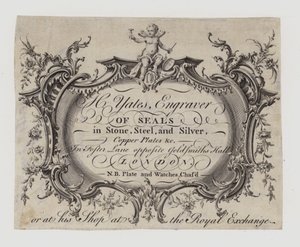 H. Yates, Engraver
OF SEALS
in Stone, Steel, and Silver,
Copper Plates &c.
In Foster Lane opposite Goldsmiths Hall
LONDON
N.B. Plate and Watches Chas'd
or at his Shop at the Royal Exchange